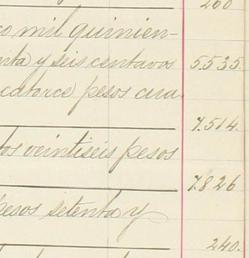 260
co mil quinien-
nta y seis centavos 5.535.
catorce pesos cua-
7.514.
tos veintiseis pesos
7.826
pesos setenta y
240.